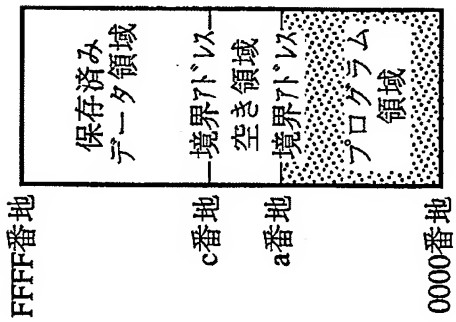 FFFF番地
保存済み
データ領域
c番地
境界アドレス
空き領域
a番地
境界アドレス
プログラム
領域
0000番地